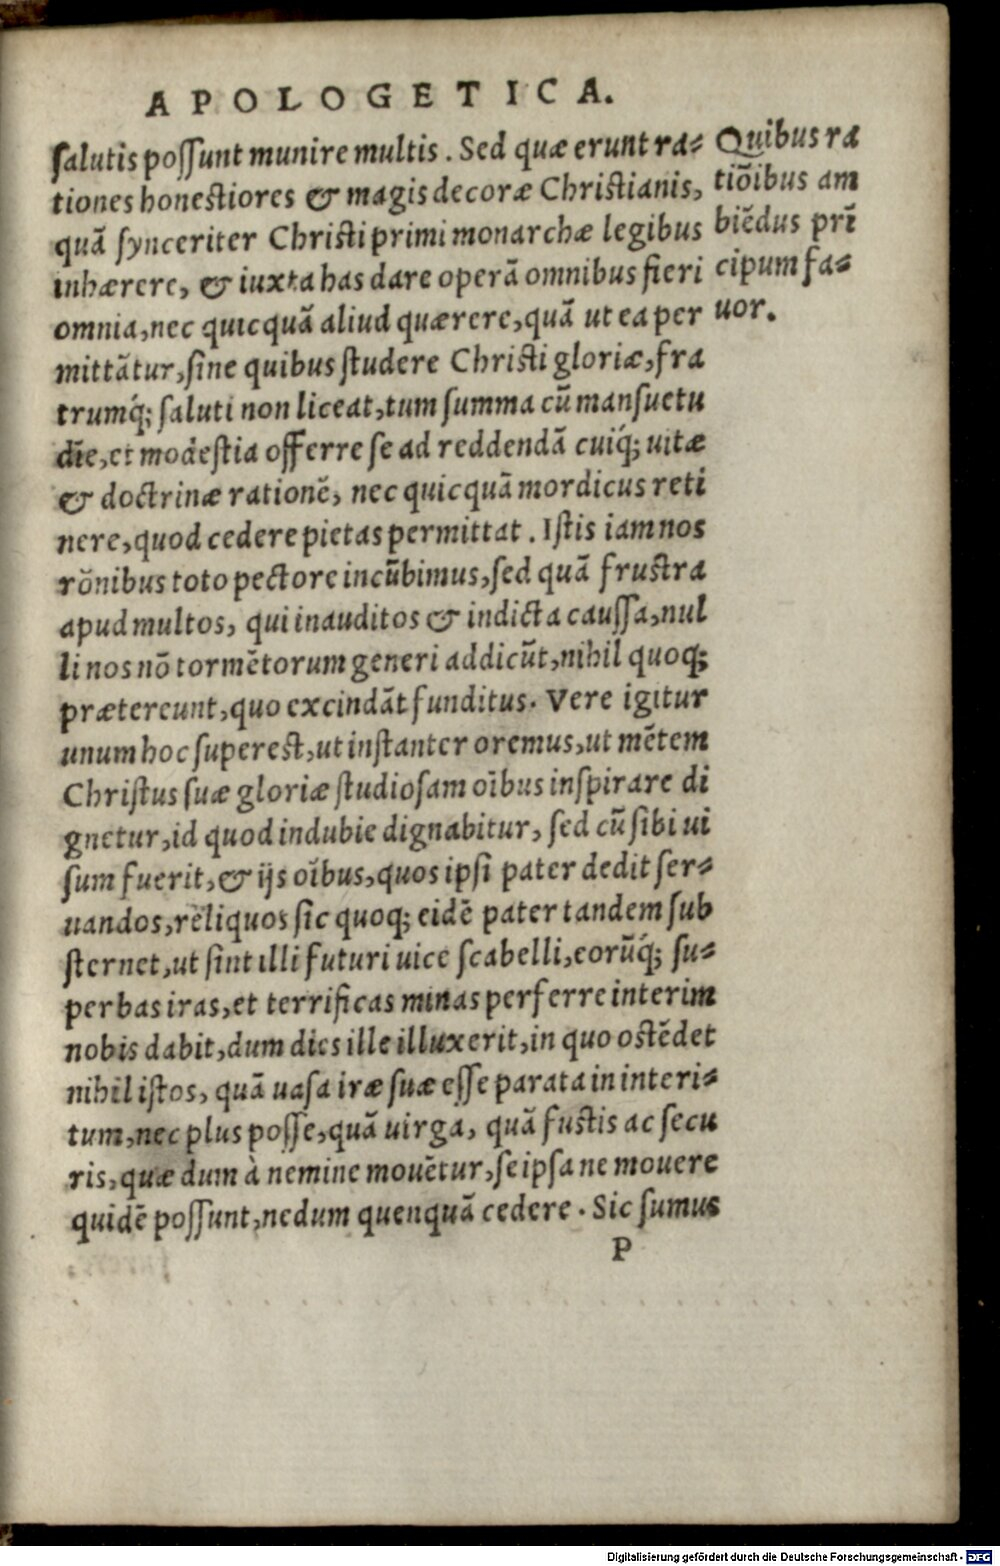 APOLOGETICA.
salutis possunt munire multis. Sed quæ erunt ra-
tiones honestiores & magis decoræ Christianis,
quã synceriter Christi primi monarchæ legibus
inhærere, & iuxta has dare operã omnibus fieri
omnia, nec quicquã aliud quærere, quã ut ea per
mittãtur, sine quibus studere Christi gloriæ, fra
trumq́; saluti non liceat, tum summa cũ mansuetu
dĩe, et modestia offerre se ad reddendã cuiq́; uitæ
& doctrinæ rationẽ, nec quicquã mordicus reti
nere, quod cedere pietas permittat. Istis iam nos
rõnibus toto pectore incũbimus, sed quã frustra
apud multos, qui inauditos & indicta caussa, nul
li nos nõ tormẽtorum generi addicũt, nihil quoq;
prætereunt, quo excindãt funditus. Vere igitur
unum hoc superest, ut instanter oremus, ut mẽtem
Christus suæ gloriæ studiosam oĩbus inspirare di
gnetur, id quod indubie dignabitur, sed cũ sibi ui
sum fuerit, & ijs oĩbus, quos ipsi pater dedit ser-
uandos, reliquos sic quoq; eidẽ pater tandem sub
sternet, ut sint illi futuri uice scabelli, eorũq́; su-
perbas iras, et terrificas minas perferre interim
nobis dabit, dum dies ille illuxerit, in quo ostẽdet
nihil istos, quã uasa iræ suæ esse parata in interi-
tum, nec plus posse, quã uirga, quã fustis ac secu
ris, quæ dum à nemine mouẽtur, seipsa ne mouere
quidẽ possunt, nedum quenquã cedere. Sic sumus
P
Quibus ra
tiõibus am
biẽdus prĩ
cipum fa-
uor.
Digitalisierung gefördert durch die Deutsche Forschungsgemeinschaft - DFG